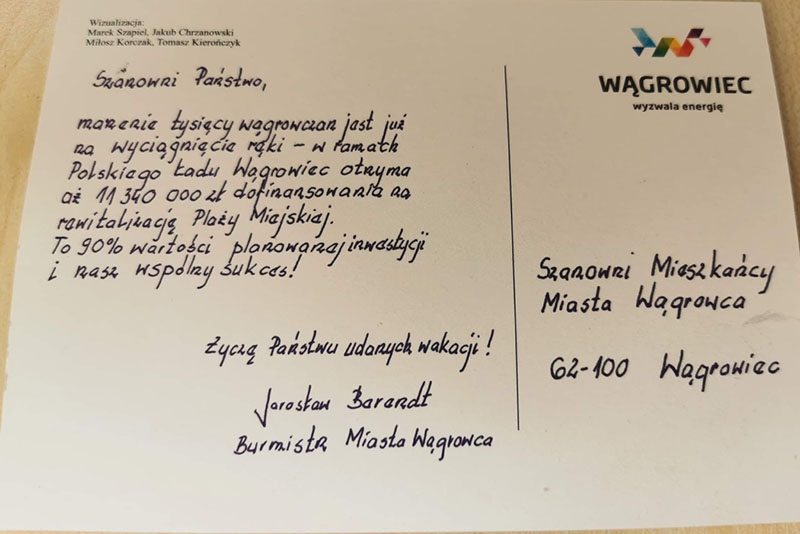 Wizualizacja:
Marek Szapiel, Jakub Chrzanowski
Miłosz Korczak, Tomasz Kierończyk
Szanowni Państwo,
marzenie tysięcy wągrowczan jest już
na wyciągnięcie ręki – w ramach
Polskiego Ładu Wągrowiec otrzyma
aż 11 340 000 zł dofinansowania na
rewitalizację Plaży Miejskiej.
To 90% wartości planowanej inwestycji
i nasz wspólny sukces!
Życzę Państwu udanych wakacji!
Jarosław Berendt
Burmistrz Miasta Wągrowca
WĄGROWIEC
wyzwala energię
Szanowni Mieszkańcy
Miasta Wągrowca
62-100 Wągrowiec